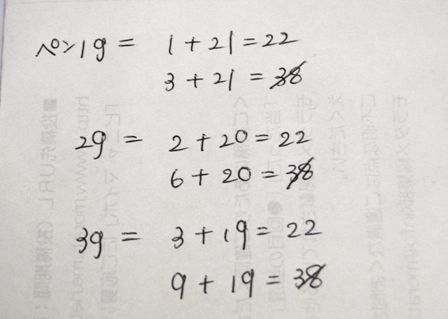 ペン1g = 1+21=22
3+21=38
2g = 2+20=22
6+20=38
3g = 3+19=22
9+19=38